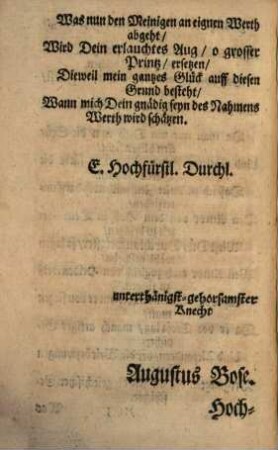 Was nun den Meinigen an eignen Werth
abgeht/
Wird Dein erlauchtes Aug/ o grosser
Printz/ ersetzen/
Dieweil mein gantzes Glück auff diesen
Grund besteht/
Wann mich Dein gnädig seyn des Nahmens
Werth wird schätzen.
E. Hochfürstl. Durchl.
unterthänigst-gehorsamster
Knecht
Augustus Bose.
Hoch-